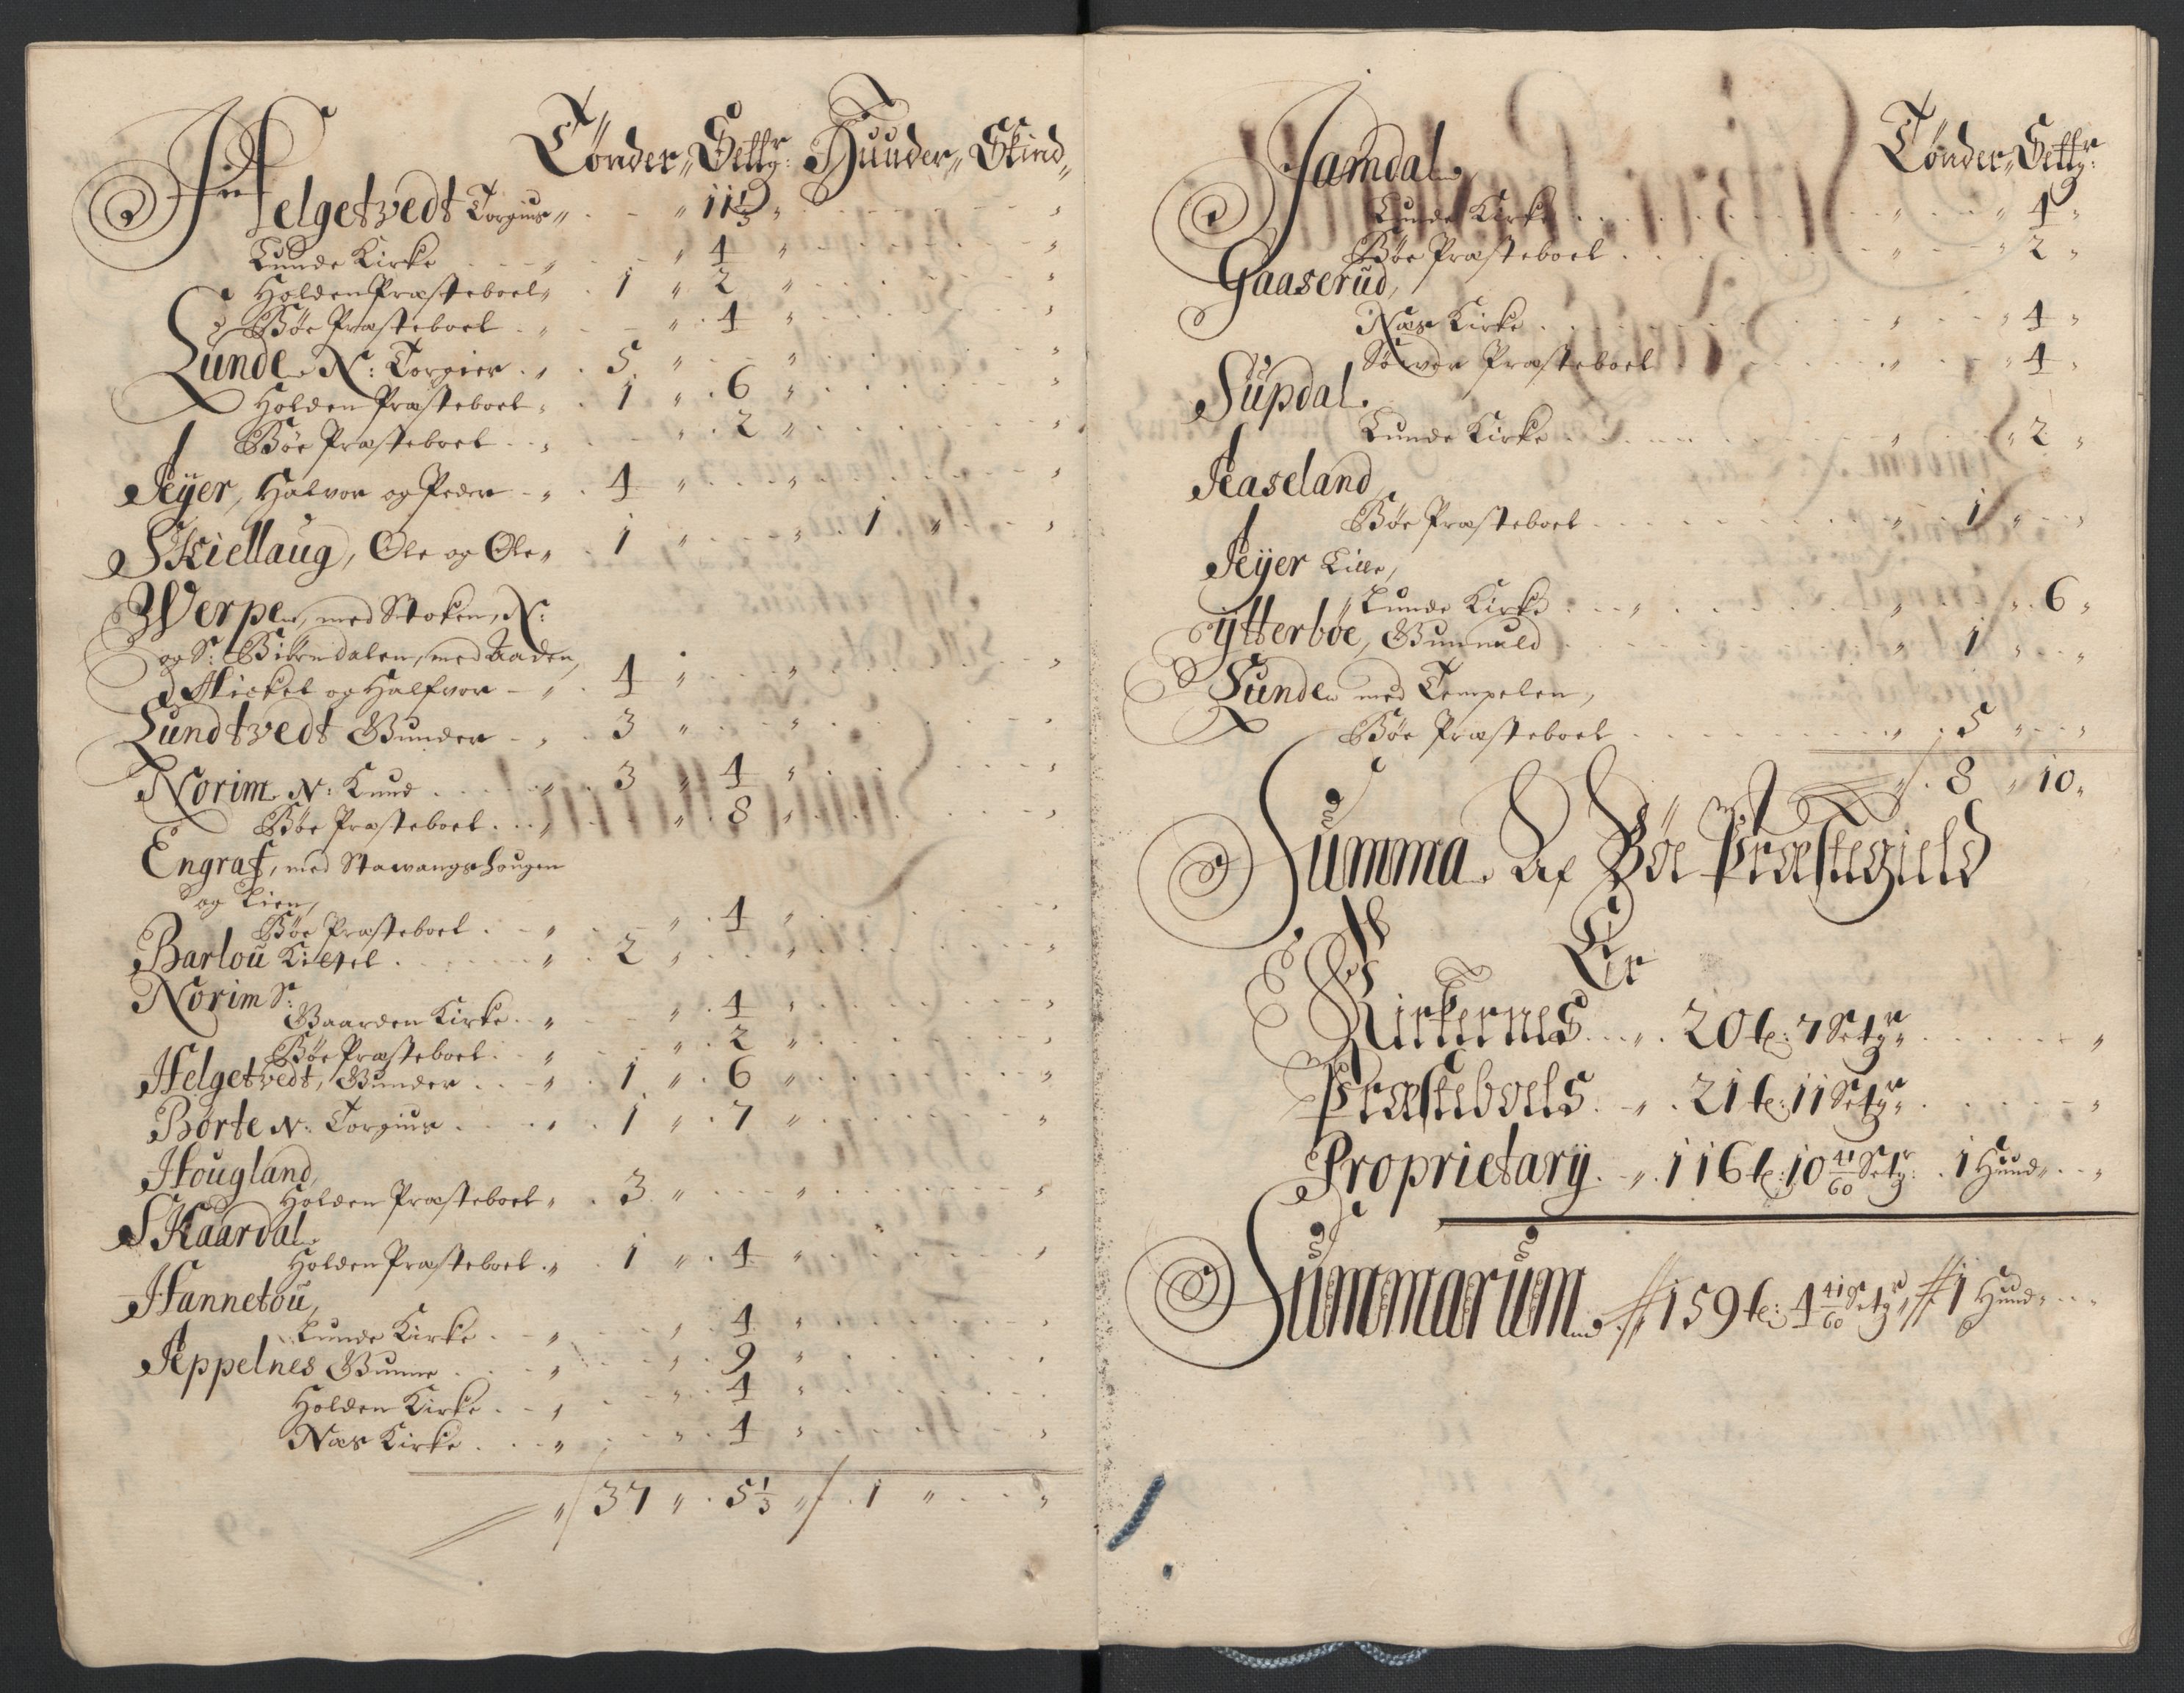 Tönder„ Settgr: Huuder„ Skind„
Helgetvedt Torgius „ . . „ 11⅓ „
Lunde Kirke „ . „ 4 „
Holden Præsteboel „ 1 „ 2 „
Bøe Præsteboel . „ „ 4 „
Lunde N: Torgier . „ 5 „ „
Holden Præsteboel „ 1 „ 6 „
Bøe Præsteboel . . „ „ 2 „
Jeÿer, Halvor og Peder „ 4 „ „
Skiellaug, Ole og Ole „ 1 „ „ 1 „
Werpe, med Stoken, N:
og S: Biörndalen, med Aaden,
Mickel og Halfvor „ 4 „ „
Lundtvedt Gunder „ 3 „ „
Norim N: Knud . . . „ 3 „ 4 „
Bøe Præsteboel . . „ „ 8 „
Engraf, med Stavangshougen
og Lien,
Bøe Præsteboel . „ „ 4 „
Barlou Kittel . . . „ 2 „ „
Norim S:
Gaarden Kirke . „ „ 4 „
Bøe Præsteboel . „ „ 2 „
Helgetvedt, Gunder . . „ 1 „ 6 „
Børte N: Torgius . . . „ 1 „ 7 „
Hougland,
Holden Præsteboel „ 3 „ „
Skaardal
Holden Præsteboel . „ 1 „ 4 „
Hannetou,
Lunde Kirke . „ „ 4 „
Jeppelnes Gunne . . „ „ 9 „
Holden Kirke . „ „ 4 „
Næs Kirke . . „ „ 4 „
„ / 37 „ 5⅓ „ / 1 „ „
Tönder„ Settgr:
Jamdal
Lunde Kirke . . . „ „ 4 „
Bøe Præsteboel . . . „ „ 2 „
Gaaserud,
Næs Kirke . . . „ „ 4 „
Præsteboel . . . „ „ 4 „
Supdal
Lunde Kirke . . . „ „ 2 „
Jeaseland
Bøe Præsteboel . . . „ 1 „ „
Jeÿer Lille,
Lunde Kirke . . . „ „ 6 „
Ÿtterbøe, Gunnuld . . . „ 1 „ „
Sunde med Tempelen,
Bøe Præsteboel . . . „ 5 „ „
„ / 8 „ 10 „
Summa Af Bøe Præstegield
Er
Kirkernes . . „ 20 t: 7 Setgr „
Præsteboels . „ 21 t: 11 Setgr „
Proprietarÿ . „ 116 t: 10 41/60 Setgr: 1 Hund „
Summarum // 159 t: 4 41/60 Setgr, // 1 Hund „